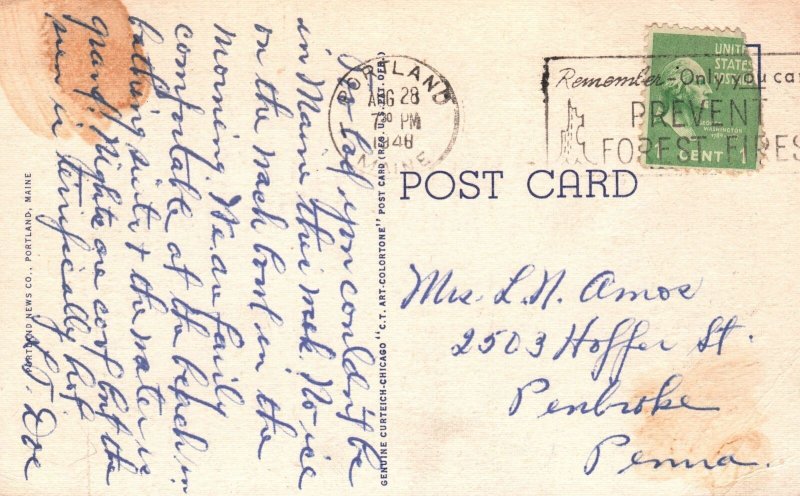 Too bad you couldn't be
in Maine this week. No ice
on the wash bowl in the
morning. We are fairly
comfortable at the beach in
bathing suits & the water is
grand. Nights are cool but the
sun is terrifically hot.
Doe
PORTLAND NEWS CO., PORTLAND, MAINE
GENUINE CURTEICH-CHICAGO "C.T. ART-COLORTONE" POST CARD (REG. U.S. PAT. OFF.)
PORTLAND
AUG 28
7 30 PM
1948
MAINE
Remember-Only you can
PREVENT
FOREST FIRES
UNITED
STATES
GEORGE
WASHINGTON
CENT 1
POST CARD
Mrs. L.N. Amos
2503 Hoffer St.
Penbroke
Penna.